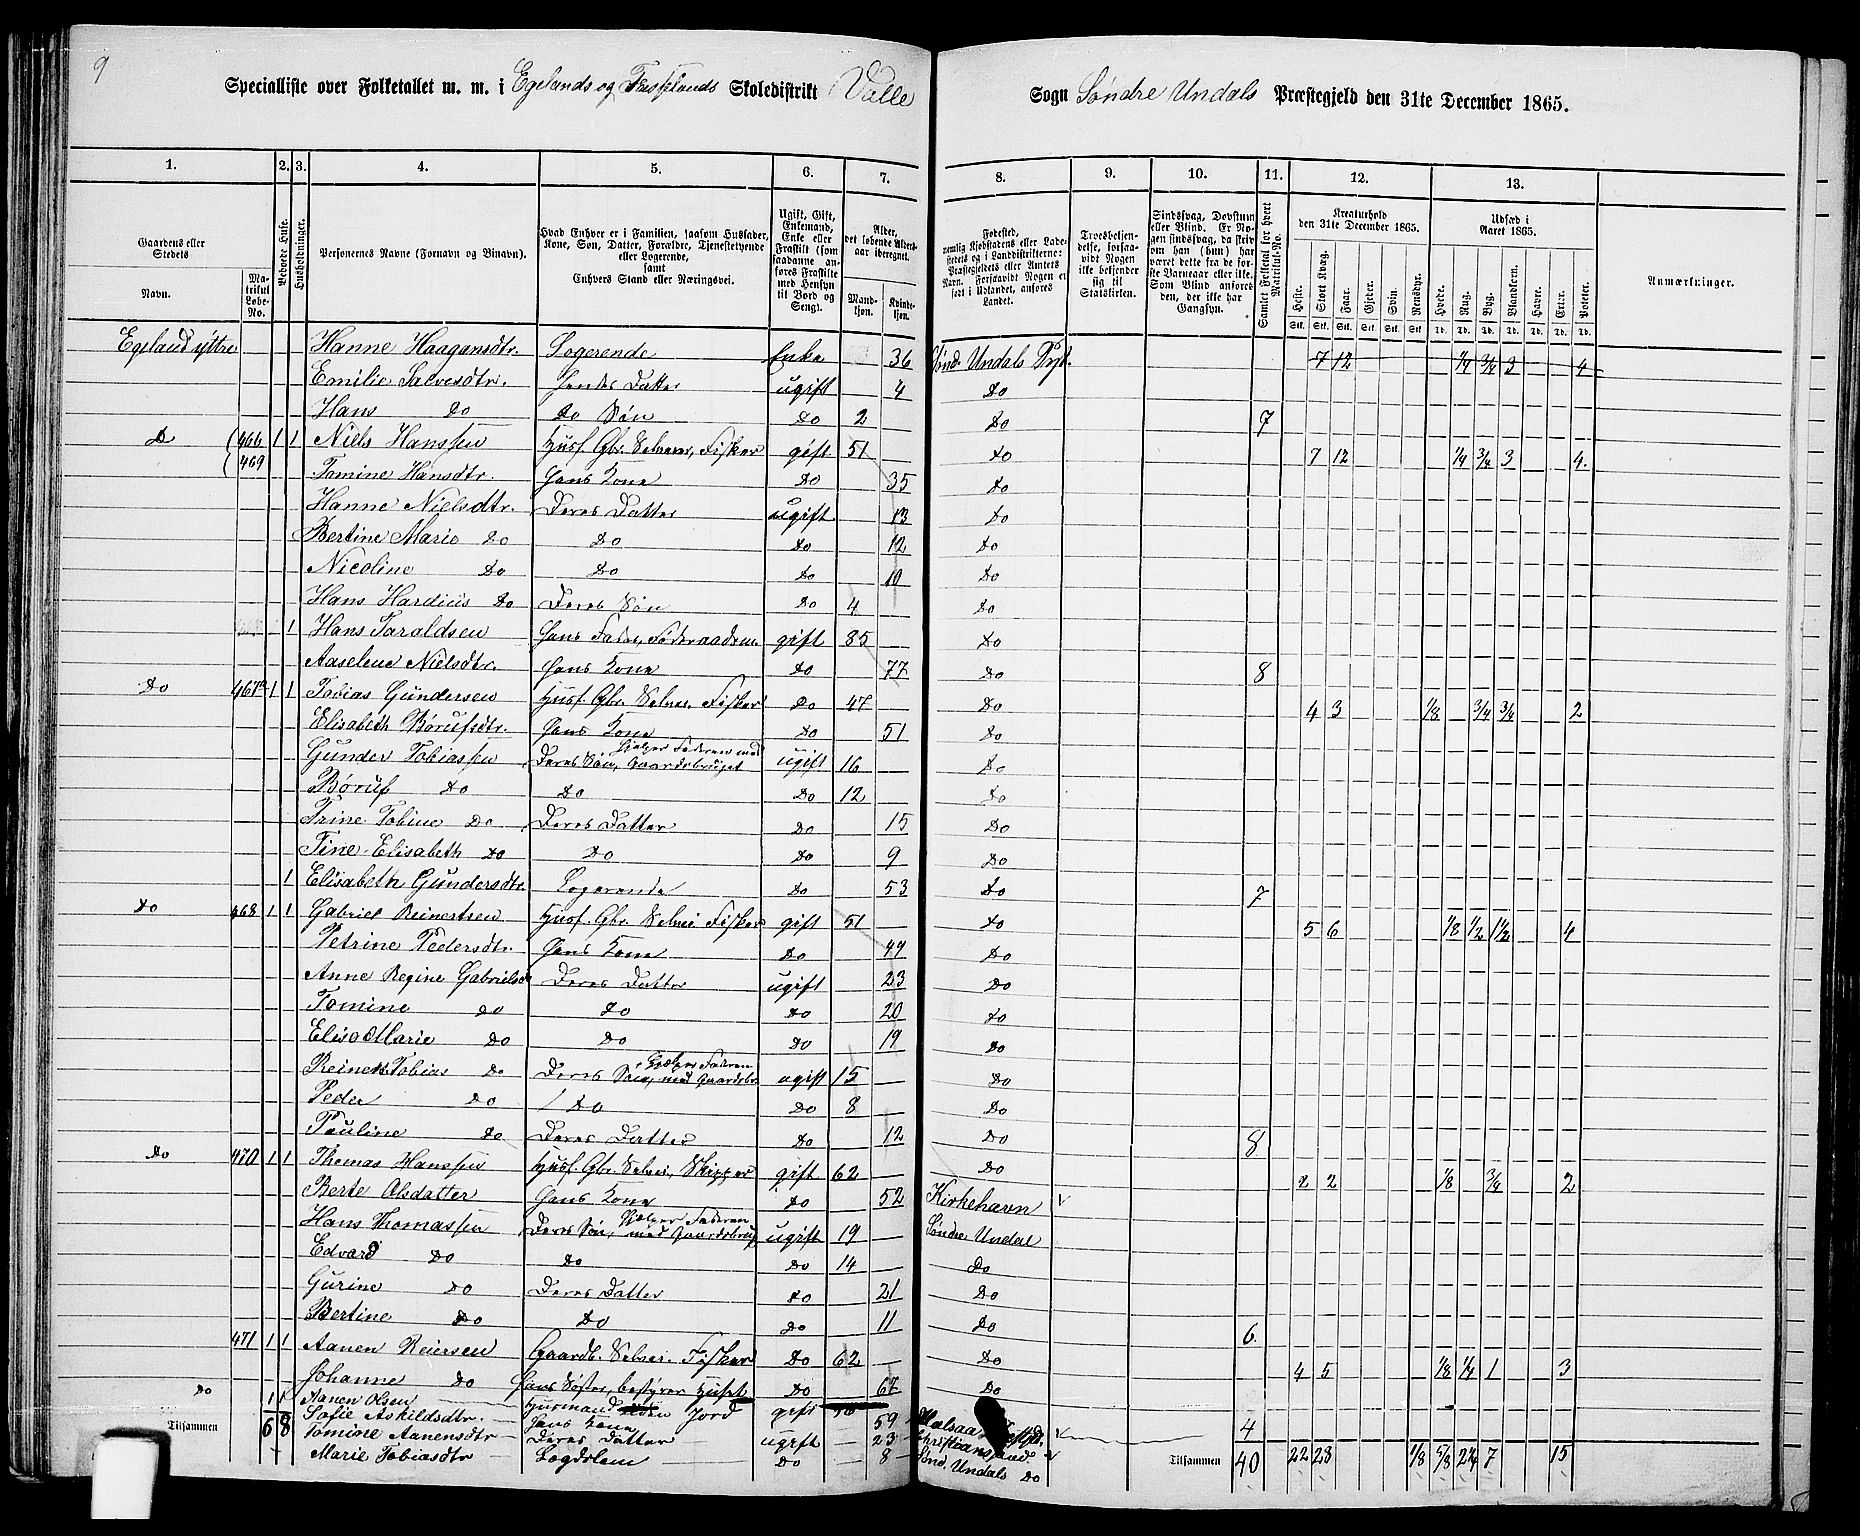 9
Specialliste over Folketallet m. m. i Egelands og Skoledistrikt Valle Sogn Søndre Undals Præstegjeld den 31te December 1865.
1. 2. 3. 4. 5. 6. 7. 8. 9. 10. 11. 12. 13.
Gaardens eller Stedets Navn. Matrikul Løbe-No. Beboede Huse. Husholdninger. Personernes Navne (Fornavn og Binavn). Hvad Enhver er i Familien, saasom Husfader, Kone, Søn, Datter, Forældre, Tjenestetyende eller Logerende, samt Enhvers Stand eller Næringsvei. Ugift, Gift, Enkemand, Enke eller Fraskilt (som saadanne anføres Fraskilte med Hensyn til Bord og Seng). Alder, det løbende Alders-aar iberegnet. Mandkjøn. Kvindekjøn. Fødested, nemlig Kjøbstadens eller Ladestedets og i Landdistrikterne: Præstegjeldets eller Amtets Navn. Forsaavidt Nogen er født i Udlandet, anføres Landet. Troesbekjendelse, forsaavidt Nogen ikke bekjender sig til Statskirken. Sindssvag, Døvstum eller Blind. Er Nogen sindssvag, da skrives om han (hun) har været dette fra de første Barneaar eller ikke. Som Blind anføres den, der ikke har Gangsyn. Samlet Folketal for hvert Matrikul-No. Kreaturhold den 31te December 1865. Udsæd i Aaret 1865. Anmærkninger.
Heste. Stort Kvæg. Faar. Gjeder. Svin. Rensdyr. Hvede. Rug. Byg. Blandkorn. Havre. Erter. Poteter.
Egeland yttre Hanne Haagansdtr. Logerende Enke 36 Sønd. Undals Prgt. 7 12 1/4 3/4 3 4
Emilie Salvesdtr. Hendes Datter ugift 4 Do
Hans Do Do Søn Do 2 Do 7
Do 466 1 1 Niels Hanssen Husf. Gbr. Selveier, Fisker gift 51 Do 7 12 1/4 3/4 3 4.
469 Tomine Hansdtr. Hans Kone Do 35 Do
Hanne Nielsdtr. Deres Datter ugift 13 Do
Bertine Marie Do Do Do 12 Do
Nicoline Do Do Do 10 Do
Hans Hardius Do Deres Søn Do 4 Do
1 Hans Taraldsen Hans Fader, Føderaadsm. gift 85 Do
Aaselene Nielsdtr. Hans Kone Do 77 Do 8
Do 467a 1 1 Tobias Gundersen Husf. Gbr. Selvei. Fisker Do 47 Do 4 3 1/8 3/4 3/4 2
Elisabeth Børufsdtr. Hans Kone Do 51 Do
Gunder Tobiassen Deres Søn, Hjelper Faderen med Gaardsbruget ugift 16 Do
Børuf Do Do Do 12 Do
Trine Tobine Do Deres Datter Do 15 Do
Tine Elisabeth Do Do Do 9 Do
1 Elisabeth Gundersdtr. Logerende Do 53 Do 7
Do 468 1 1 Gabriel Reinertsen Husf. Gbr. Selvei. Fisker gift 51 Do 5 6 1/8 1/2 1 1/2 4
Petrine Pedersdtr. Hans Kone Do 49 Do
Anne Regine Gabrielsd. Deres Datter ugift 23 Do
Tomine Do Do Do 20 Do
Elise Marie Do Do Do 19 Do
Reinert Tobias Do Deres Søn, Hjelper Faderen med Gaardsbr. ugift 15 Do
Peder Do Do Do 8 Do
Pauline Do Deres Datter Do 12 Do 8
Do 470 1 1 Thomas Hanssen Husf. Gbr. Selvei., Skipper gift 62 Do 2 2 1/8 3/4 2
Berte Olsdatter Hans Kone Do 52 Kirkehavn
Hans Thomassen Deres Søn, Hjelper Faderen med Gaardsbrug ugift 19 Søndre Undal
Edvard Do Do Do 14 Do
Gurine Do Deres Datter Do 21 Do
Bertine Do Do Do 11 Do 6.
471 1 1 Aanen Reiersen Gaardb. Selvei. Fisker Do 62 Do 4 5 1/8 1/4 1 3
Johanne Do Hans Søster, bestyrer Huset Do 67 Do
Do 1 1 Aanen Olsen Husmand Jord gift
Sofie Askildsdtr. Hans Kone 59 4
Tomine Aanensdtr Deres Datter ugift 23 Christianssand
Marie Tobiasdtr Lægdslem Do 8 Sønd. Undals Do
Tilsammen 6 8 Tilsammen 40 22 28 1/8 5/8 2 1/4 7 15